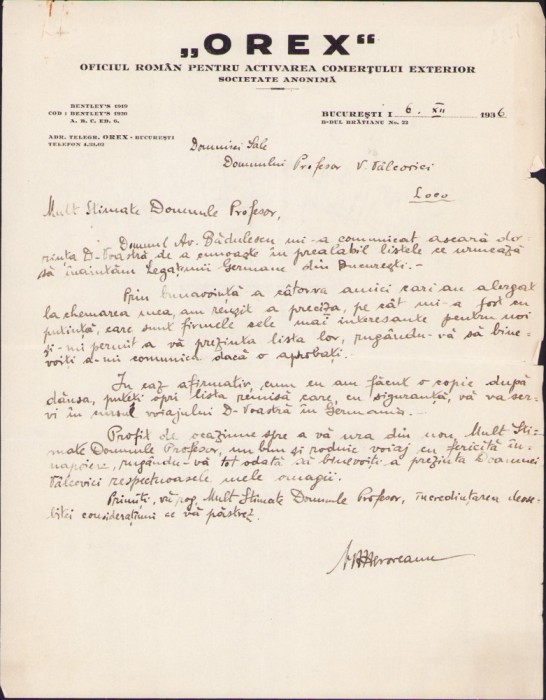 „OREX“
OFICIUL ROMÂN PENTRU ACTIVAREA COMERȚULUI EXTERIOR
SOCIETATE ANONIMĂ
BENTLEY'S 1919
COD : BENTLEY'S 1930
A. B. C. ED. 6.
ADR. TELEGR. OREX - BUCUREȘTI
TELEFON 4.33.02
BUCUREȘTI I 6. XII 1936
B-DUL BRĂTIANU No. 22
Domniei Sale
Domnului Profesor V. Vâlcovici
Loco
Mult Stimate Domnule Profesor,
Domnul Av. Bădulescu mi-a comunicat aseară do-
rința D-Voastră de a cunoaște în prealabil listele ce urmează
să înaintăm Legațiunii Germane din București.-
Prin bunăvoința a câtorva amici cari au alergat
la chemarea mea, am reușit a preciza, pe cât mi-a fost cu
putință, care sunt firmele cele mai interesante pentru noi
și-mi permit a vă prezinta lista lor, rugându-vă să bine-
voiți a-mi comunica dacă o aprobați.
In caz afirmativ, cum eu am făcut o copie după
dânsa, puteți opri lista remisă care, cu siguranță, vă va ser-
vi în cursul voiajului D-Voastră în Germania.-
Profit de ocaziune spre a vă ura din nou, Mult Sti-
mate Domnule Profesor, un bun și rodnic voiaj cu fericită în-
napoiere, rugându-vă tot odată să binevoiți a prezinta Doamnei
Vâlcovici respectuoasele mele omagii.
Primiți, vă rog, Mult Stimate Domnule Profesor, încredințarea deose-
bitei considerațiuni ce vă păstrez.